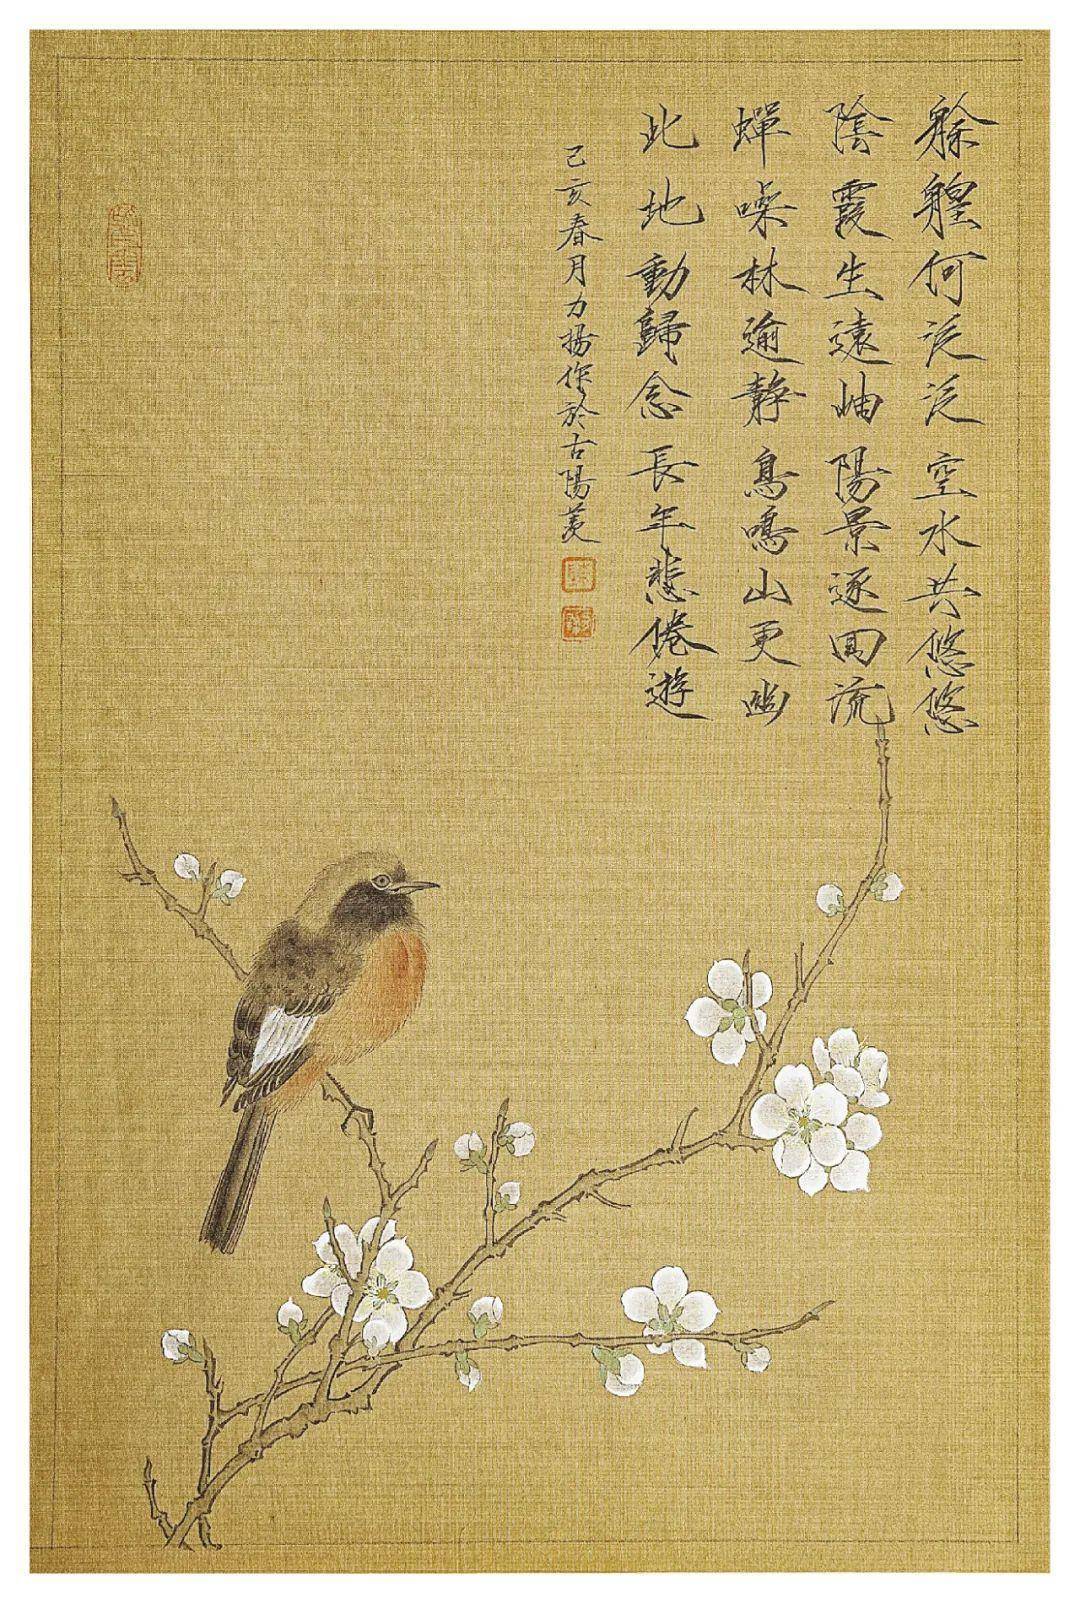 艅艎何泛泛空水共悠悠
陰霞生遠岫陽景逐回流
蟬噪林逾静鳥鳴山更幽
此地動歸念長年悲倦遊
己亥春月力揚作於古陽羨